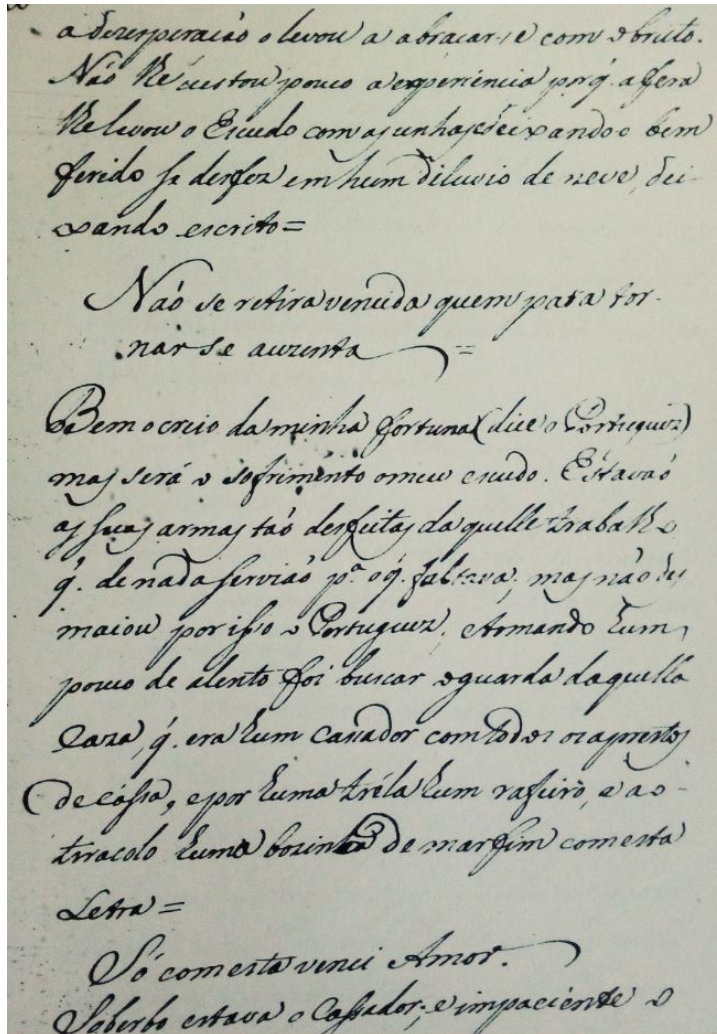 a dezesperacaó o levou a abracar-se com o bruto.
Naó lhe custou pouco a experiencia porq̃. a fera
lhe levou o Escudo com as unhas, e deixando o bem
ferido se desfez em hum diluvio de neve, dei-
xando escrito=
Naó se retira vencida quem para tor-
nar se auzenta =
Bem o creio da minha fortuna (dice o Portuguez)
mas será o sofrimento o meu escudo. Estavaó
as suas armas taó desfeitas da quelle trabalho
q̃. de nada serviaó pª. o q̃. faltava, mas não des
maiou por isso o Portuguez, tomando hum
pouco de alento foi buscar o guarda daquella
Caza, q̃. era hum Cassador com todos os aprestos
de cassa, e por huma tréla hum rafeiro, e a o-
tiracolo huma bozinha de marfim com esta
Letra=
Só com esta venci Amor.
Soberbo estava o Cassador, e impaciente o